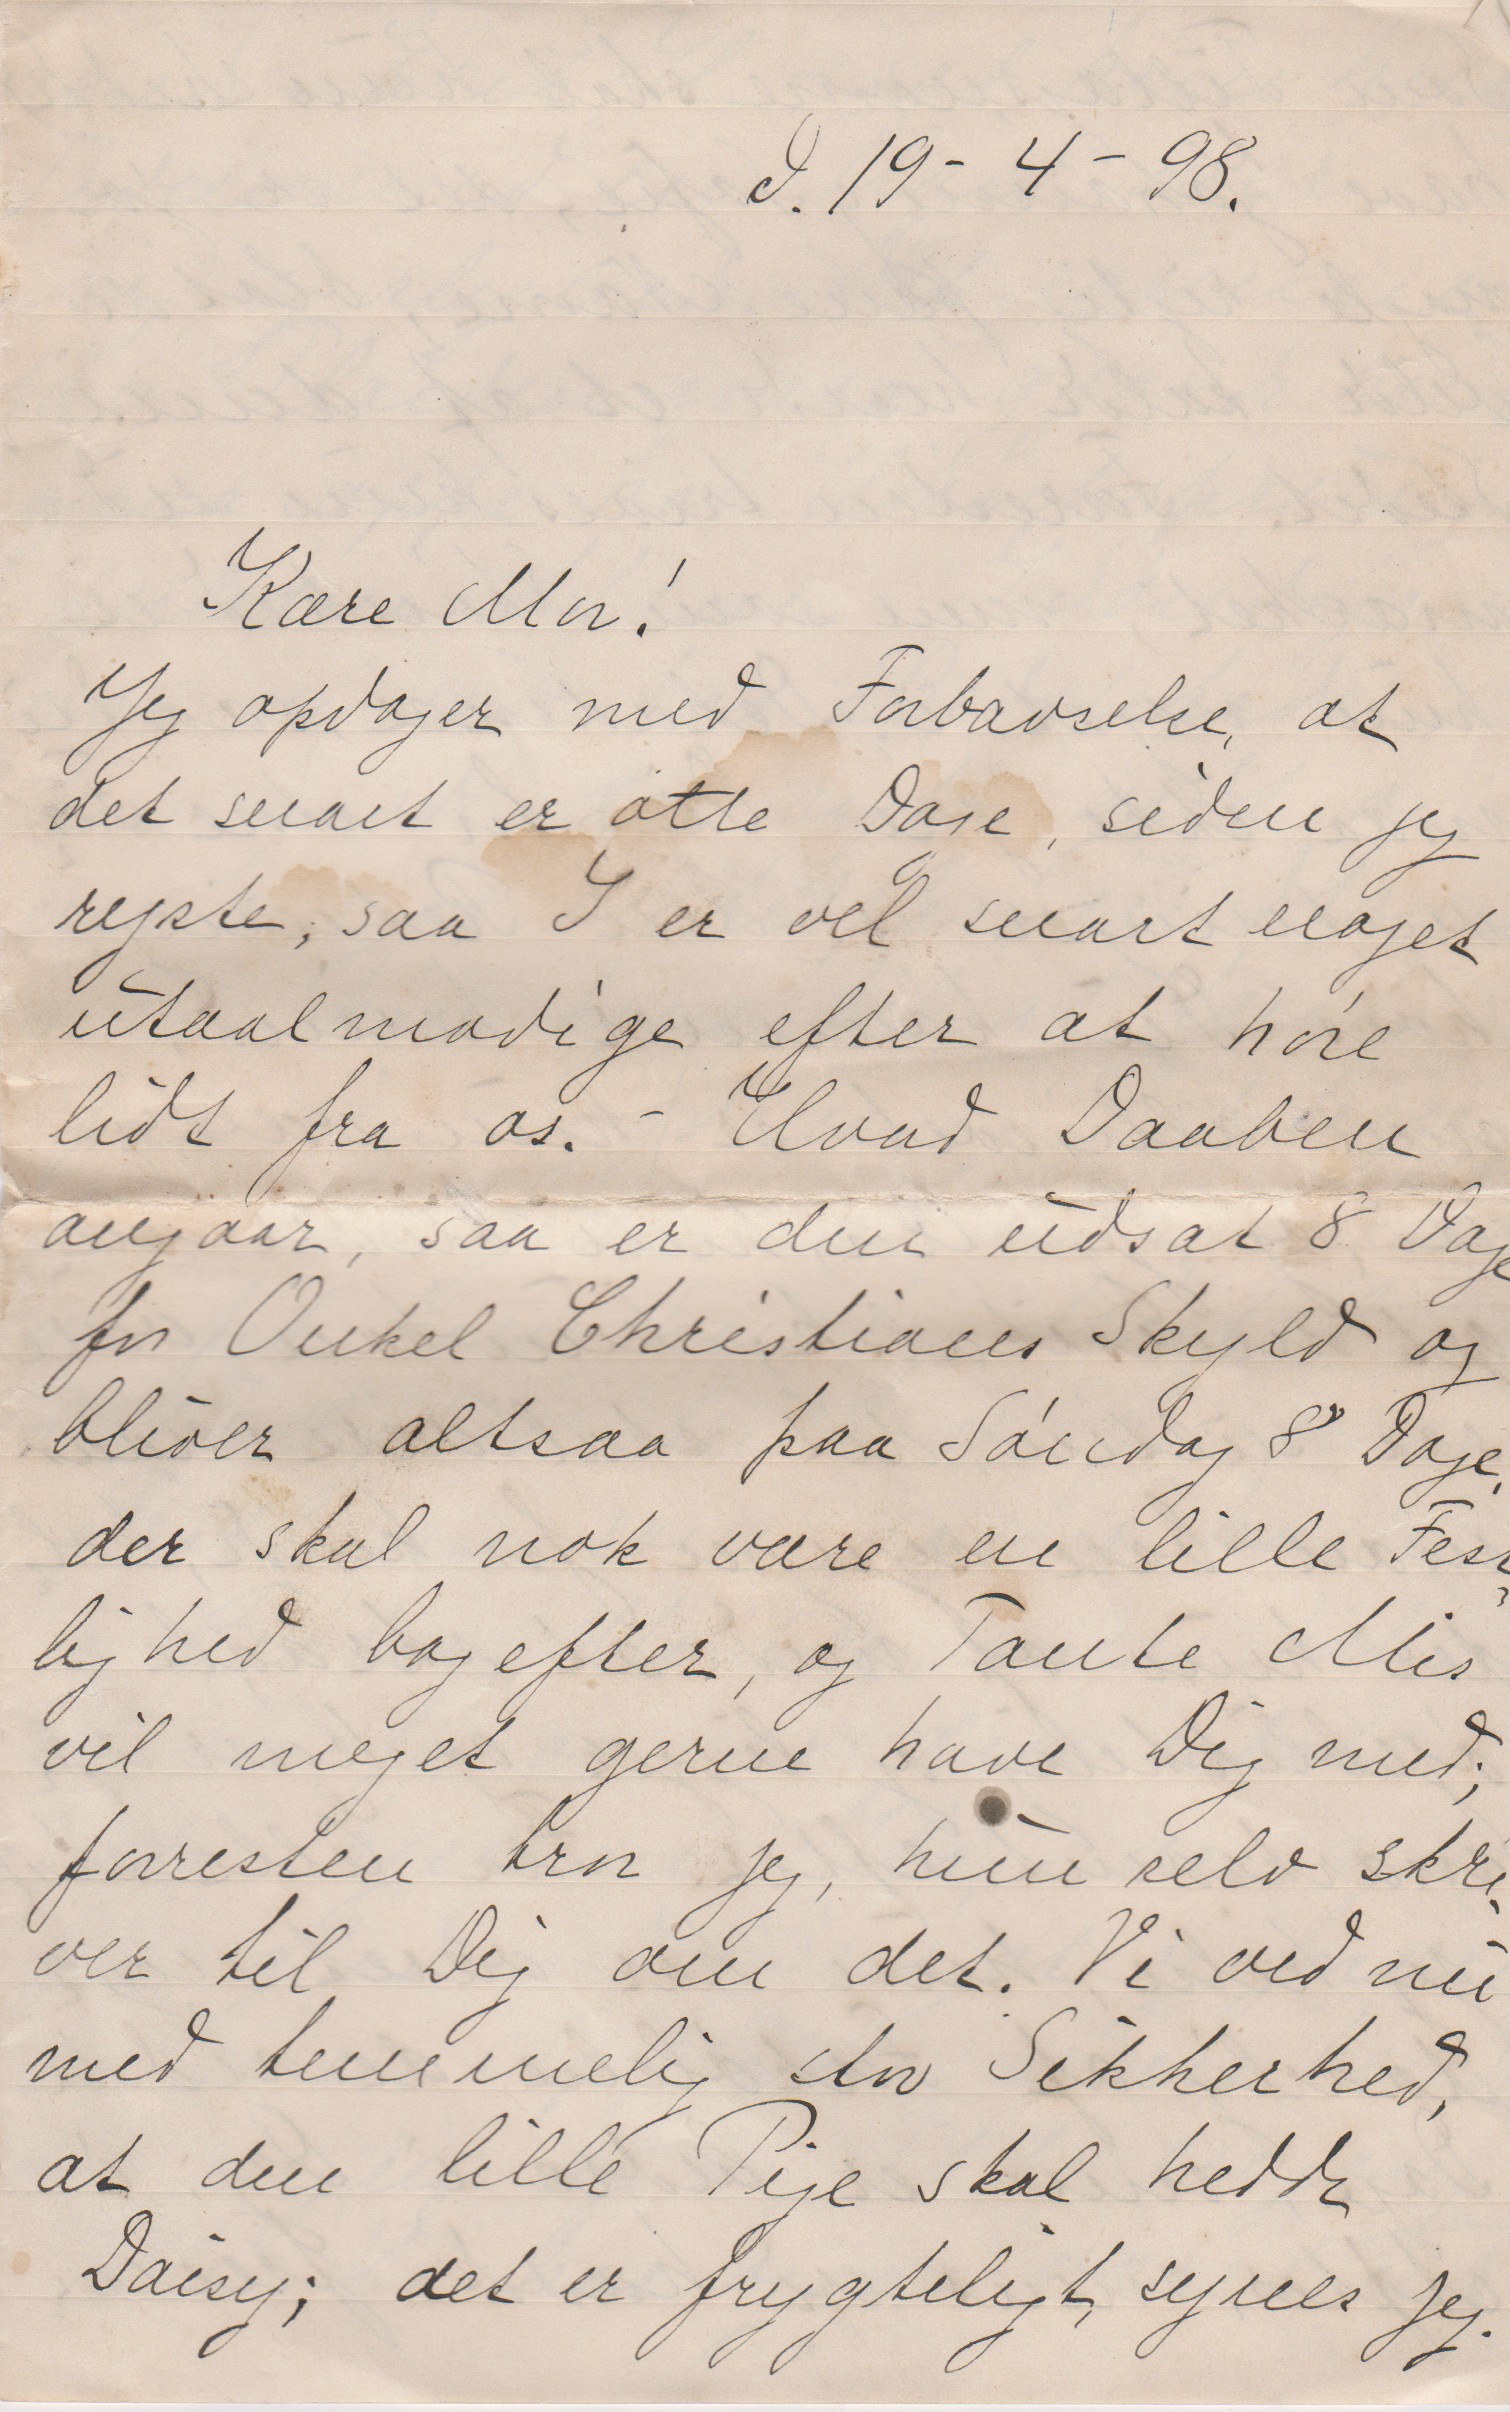 d. 19 - 4 - 98.
Kære Mor!
Jeg opdager med Forbavselse, at
det snart er otte Dage, siden jeg
rejste, saa I er vel snart noget
utaalmodige efter at høre
lidt fra os. - Hvad Daaben
angaar, saa er den udsat 8 Dage
for Onkel Christians Skyld og
bliver altsaa paa Søndag 8 Dage,
der skal nok være en lille Fest
lighed bagefter, og Tante Mis
vil meget gerne have Dig med;
forresten tror jeg, hun selv skri-
ver til Dig om det. Vi ved nu
med temmelig stor Sikkerhed,
at den lille Pige skal hedde
Daisy; det er frygteligt, synes jeg.